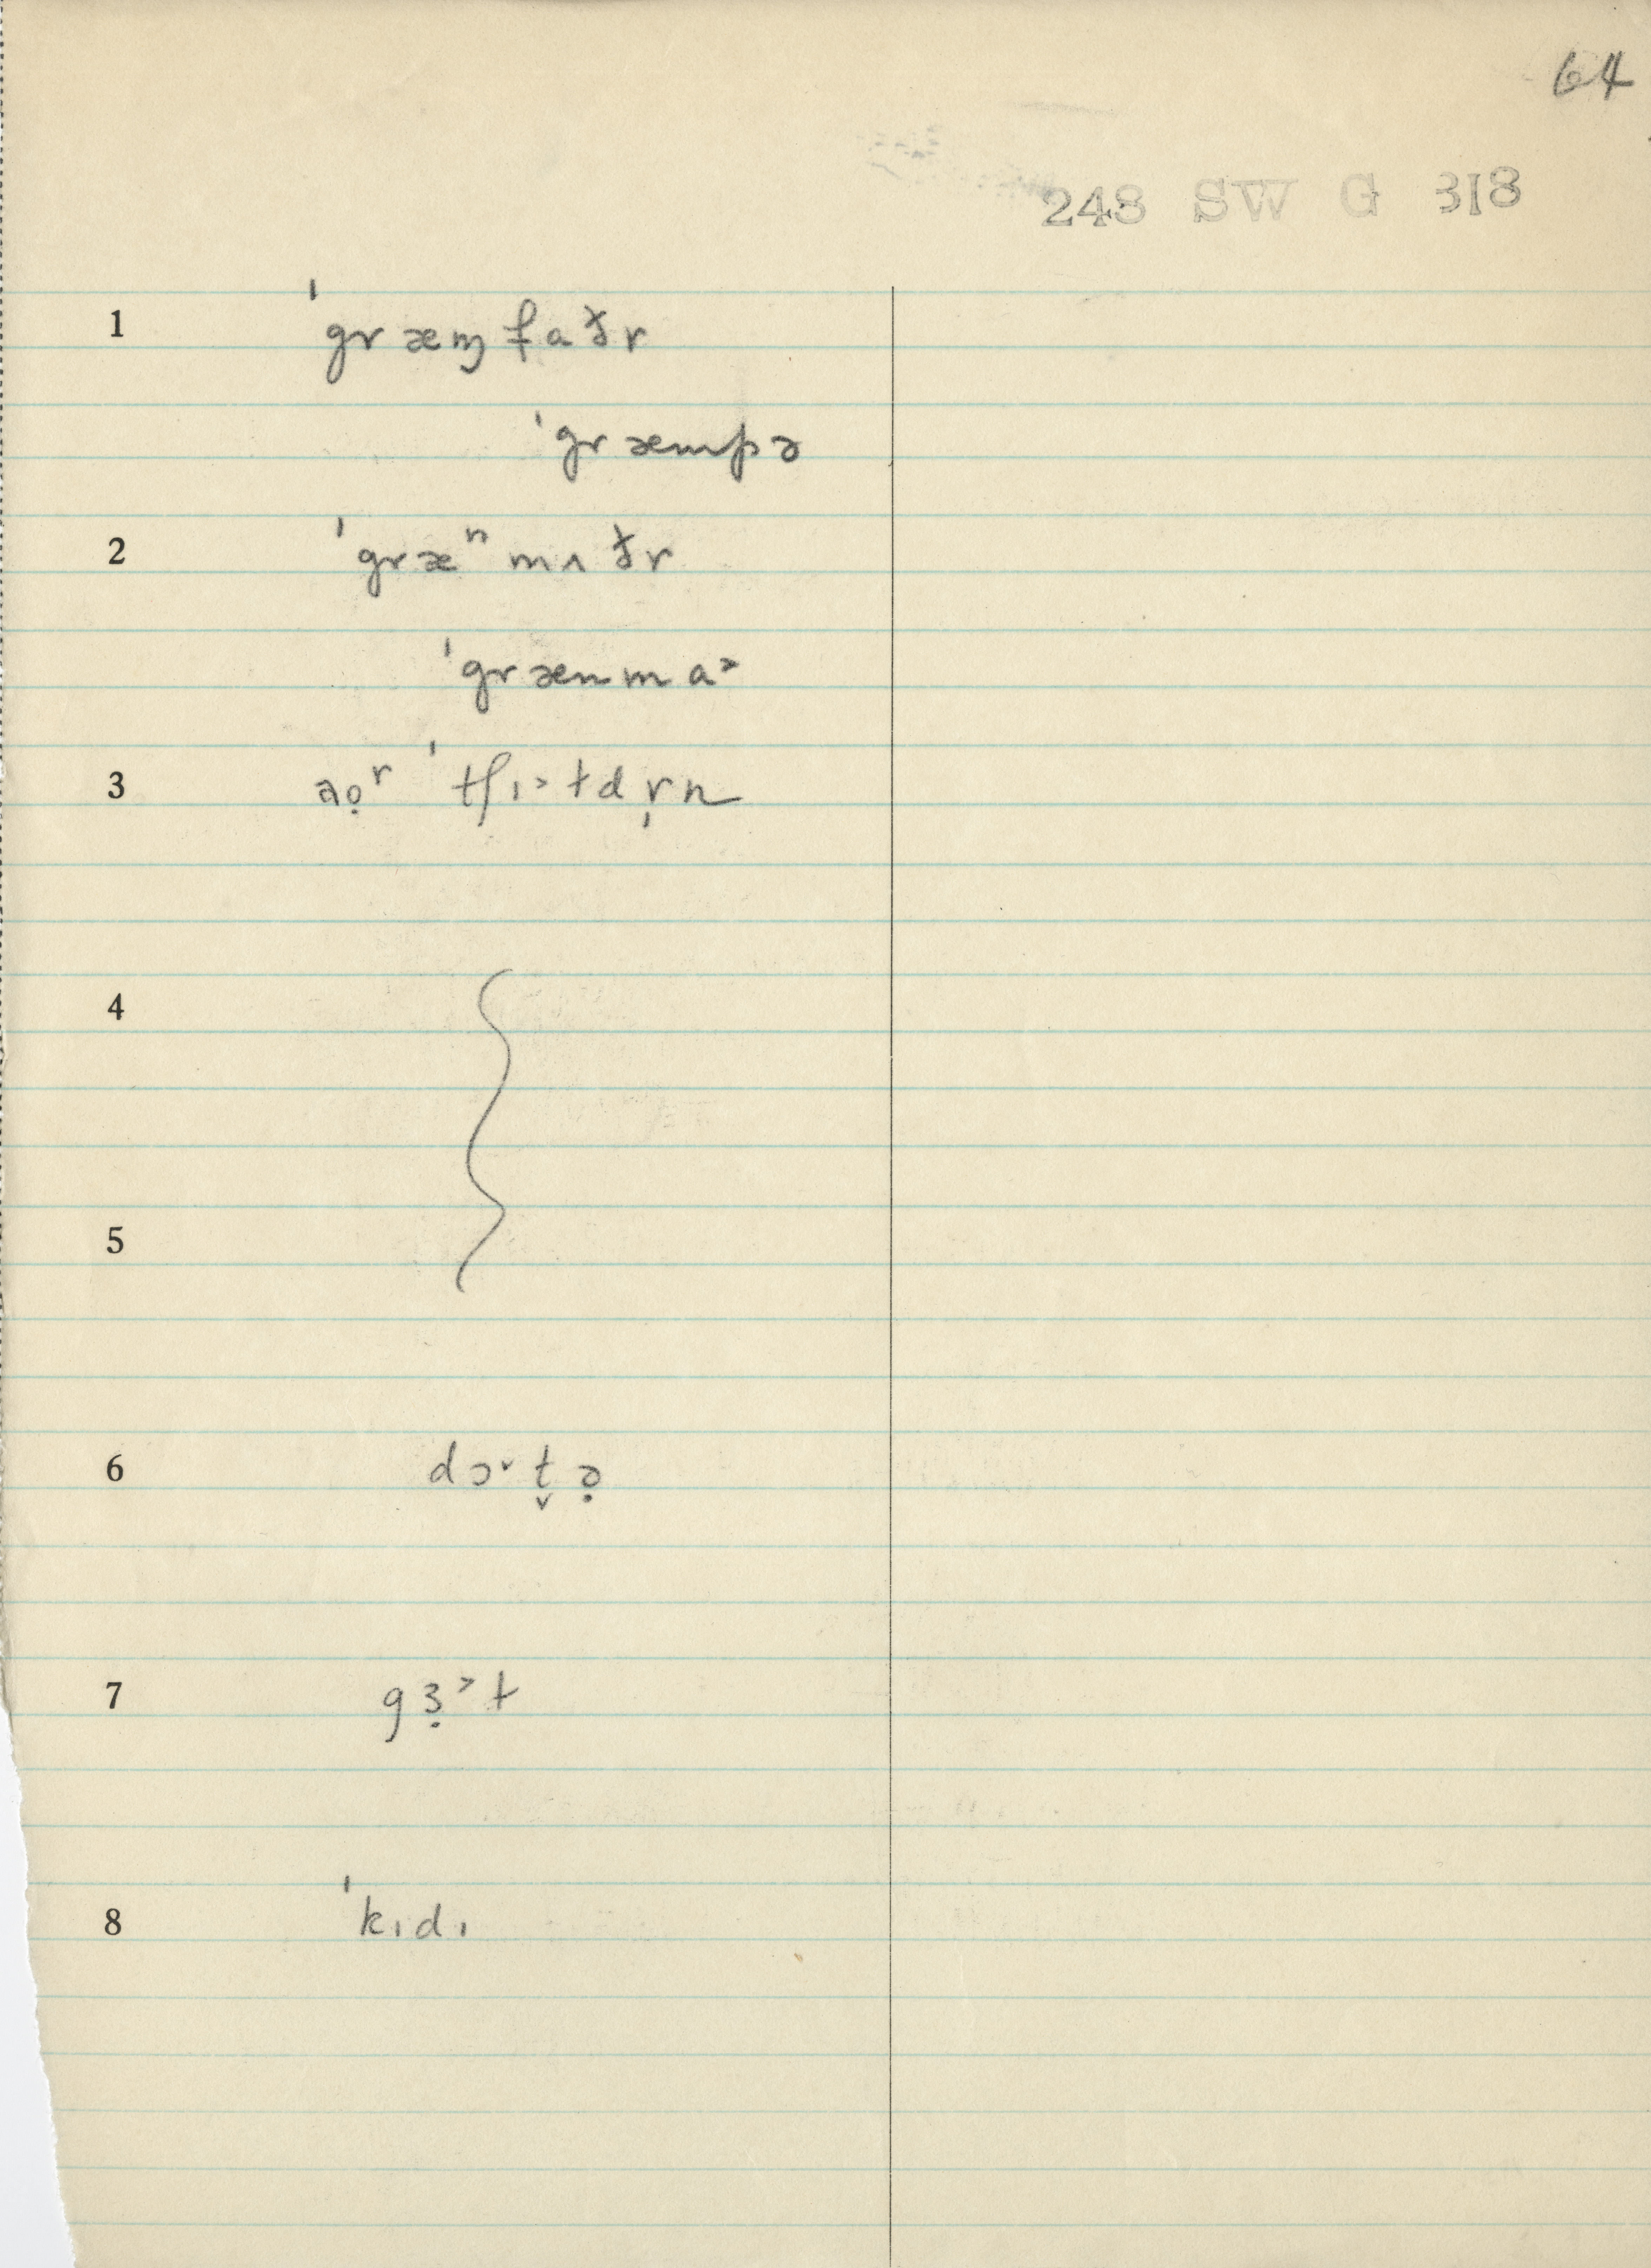 64
248 SW G 318
1 ˈgræɱfaðr
ˈgræmpə
2 ˈgræⁿmʌðr
ˈgrænma˃
3 aọʳ ˈtʃɪ˃łdr̩n
4
5
6 dɔ˅t̬ə̣
7 gɜ̣˃ł
8 ˈkɪdɪ